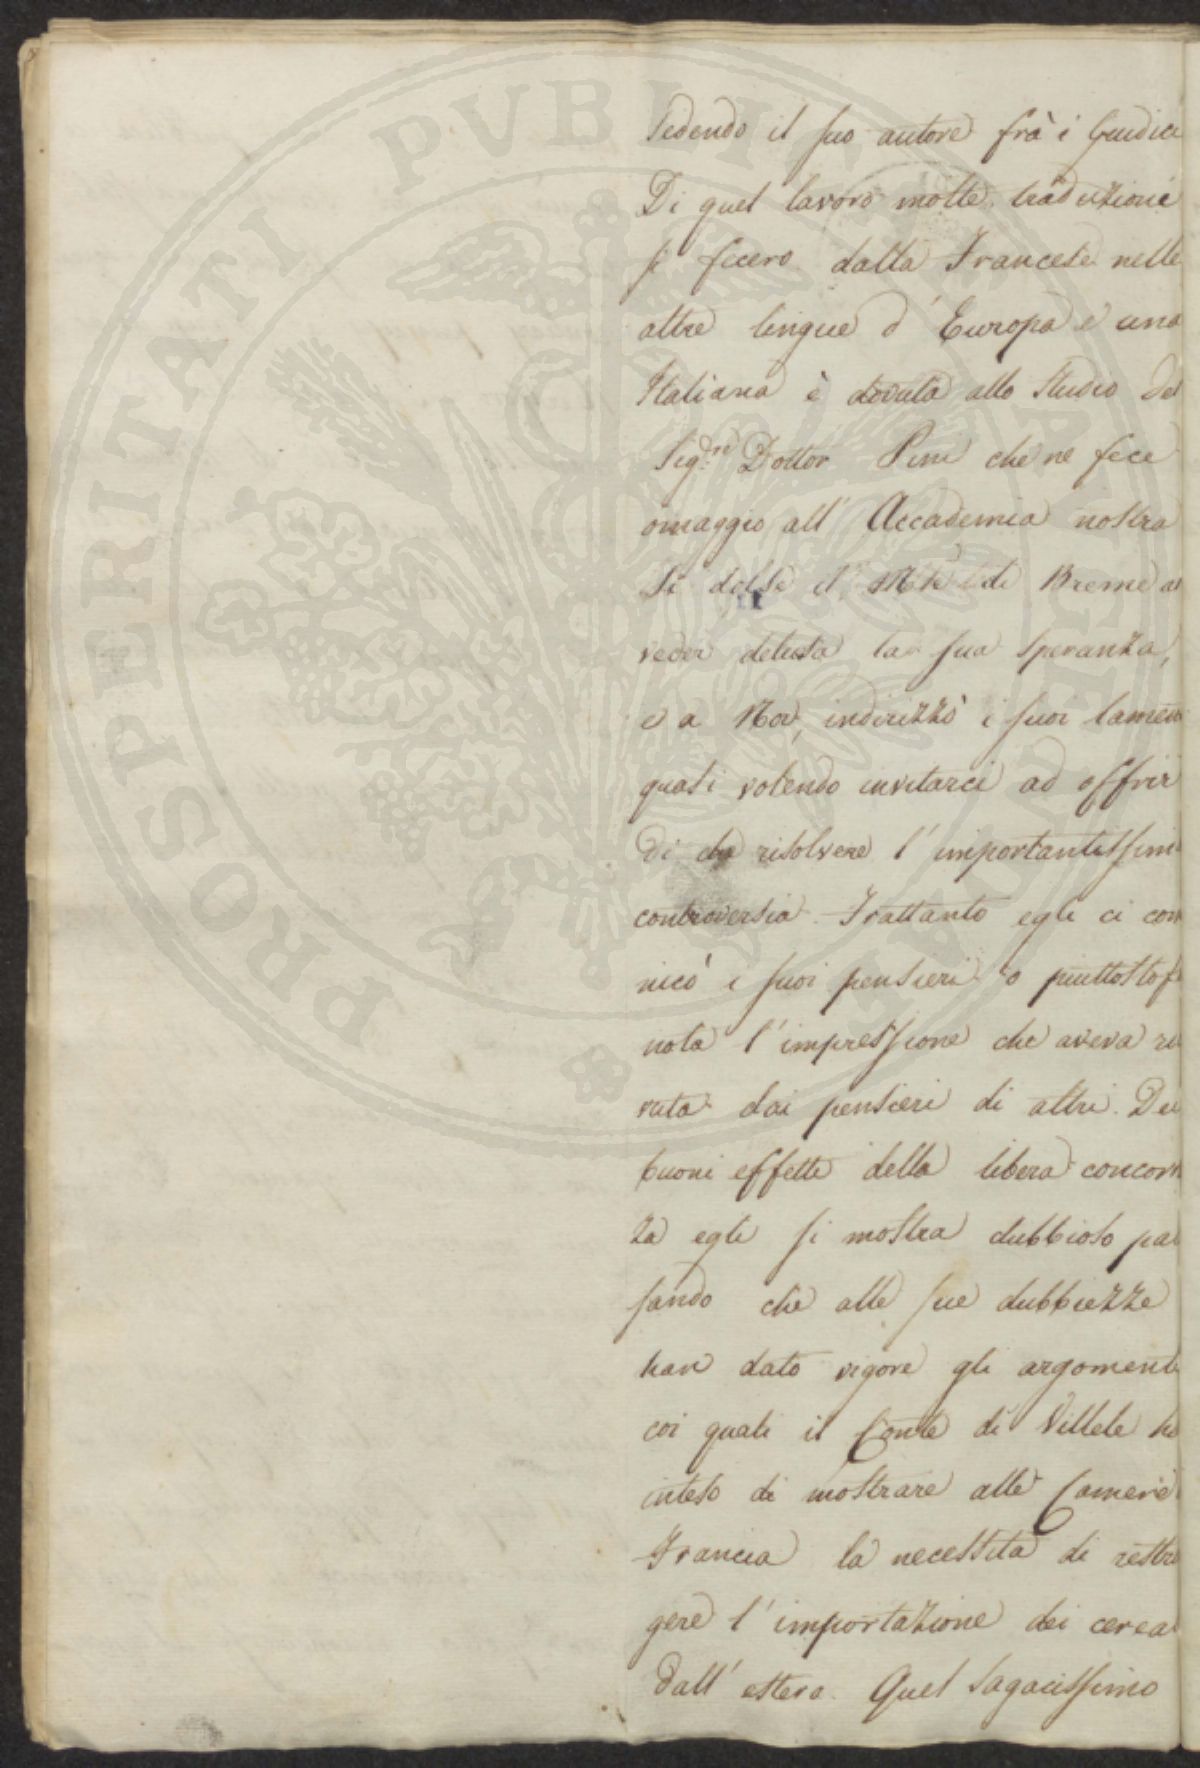 Sedendo il suo autore frà i Giudici
Di quel lavoro molte traduzioni
si fecero dalla Francese nelle
altre lingue d'Europa e una
Italiana è dovuta allo Studio del
Sig.re Dottor Pini che ne fece
omaggio all'Accademia nostra
Si dolse il di Breme al
veder delusa la sua speranza,
e a Noi, indirizzò i suoi lamen
quasi volendo invitarci ad offrir
di risolvere l'importantissim
controversia. Frattanto egli ci com
nicò i suoi pensieri o piuttosto f
nota l'impressione che aveva ri
vuta dai pensieri di altri. Dei
buoni effetti della libera concorr
za egli si mostra dubbioso pa
sando che alle sue dubbiezze
han dato vigore gli argomenti
coi quali il Conte di Villele ha
inteso di mostrare alle Camere
Francia la necessità di restri
gere l'importazione dei cereal
dall'estero. Quel Sagacissimo
PROSPERITATI PVBLICAE AVGENDAE